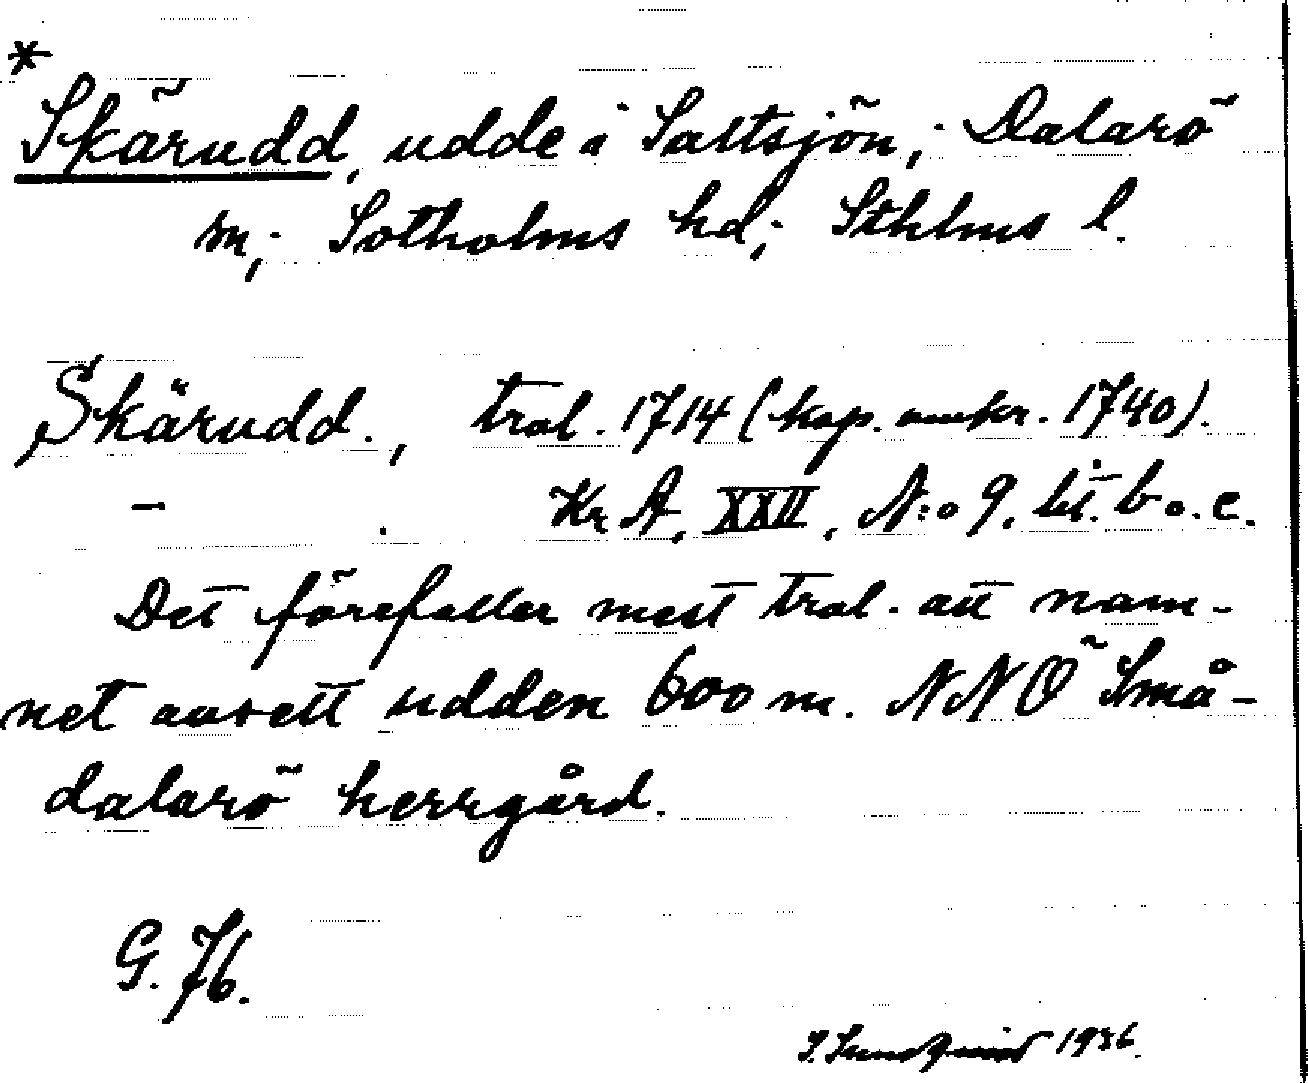 *
Skärudd, udde i Saltsjön; Dalarö
sn; Sotholms hd; Sthlms l.
Skärudd., trol. 1714 (kop. omkr. 1740).
- . Kr A, XXII, N:o 9. lit. b o. c.
Det förefaller mest trol. att nam-
net avsett udden 600 m. NNÖ Små-
dalarö herrgård.
G. 76.
1936.